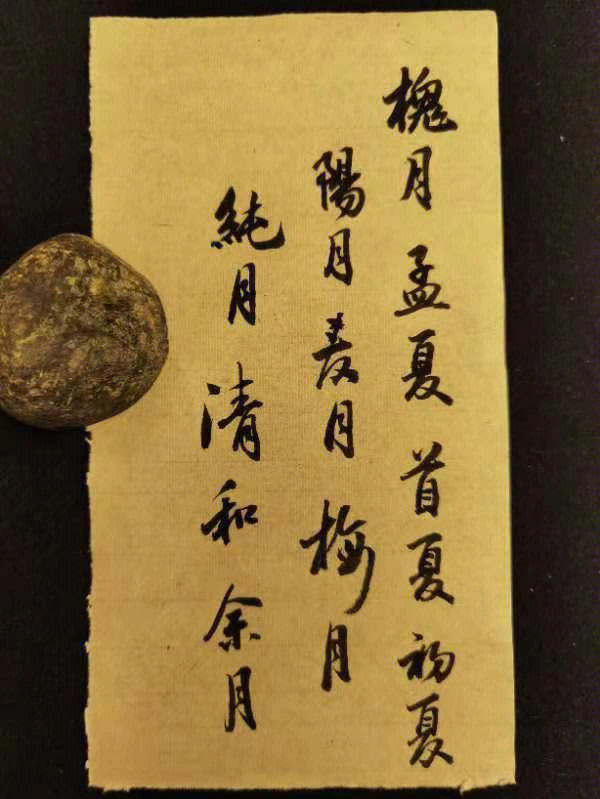 槐月 孟夏 首夏 初夏
陽月 麦月 梅月
純月 清和 余月